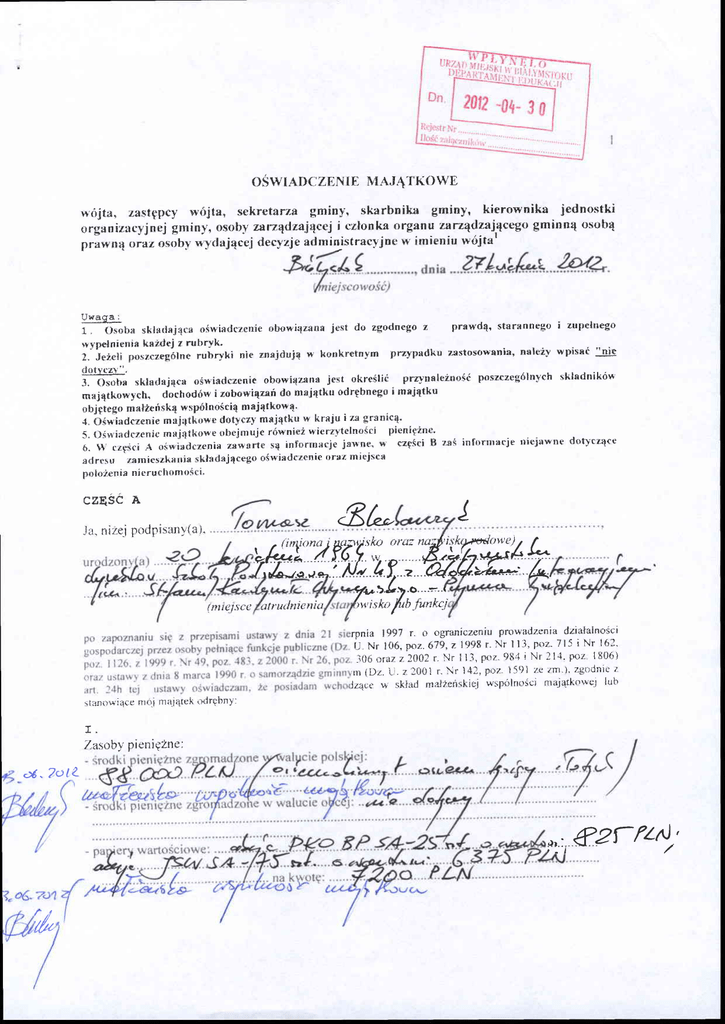 WPŁYNĘŁO
URZĄD MIEJSKI W BIAŁYMSTOKU
DEPARTAMENT EDUKACJI
Dn. 2012 -04- 30
Rejestr Nr
Ilość załączników
1
OŚWIADCZENIE MAJĄTKOWE
wójta, zastępcy wójta, sekretarza gminy, skarbnika gminy, kierownika jednostki
organizacyjnej gminy, osoby zarządzającej i członka organu zarządzającego gminną osobą
prawną oraz osoby wydającej decyzje administracyjne w imieniu wójta1
Białystok, dnia 27 kwietnia 2012 r.
(miejscowość)
Uwaga:
1. Osoba składająca oświadczenie obowiązana jest do zgodnego z prawdą, starannego i zupełnego
wypełnienia każdej z rubryk.
2. Jeżeli poszczególne rubryki nie znajdują w konkretnym przypadku zastosowania, należy wpisać "nie
dotyczy".
3. Osoba składająca oświadczenie obowiązana jest określić przynależność poszczególnych składników
majątkowych, dochodów i zobowiązań do majątku odrębnego i majątku
objętego małżeńską wspólnością majątkową.
4. Oświadczenie majątkowe dotyczy majątku w kraju i za granicą.
5. Oświadczenie majątkowe obejmuje również wierzytelności pieniężne.
6. W części A oświadczenia zawarte są informacje jawne, w części B zaś informacje niejawne dotyczące
adresu zamieszkania składającego oświadczenie oraz miejsca
położenia nieruchomości.
CZĘŚĆ A
Ja, niżej podpisany(a), Tomasz
(imiona i nazwisko oraz nazwisko rodowe)
urodzony(a) 20 kwietnia 1964 w Białymstoku
dyrektor Szkoły Podstawowej Nr 49 z Oddziałami Integracyjnymi
im. Stefana Kardynała Wyszyńskiego - Prymasa Tysiąclecia
(miejsce zatrudnienia, stanowisko lub funkcja)
po zapoznaniu się z przepisami ustawy z dnia 21 sierpnia 1997 r. o ograniczeniu prowadzenia działalności
gospodarczej przez osoby pełniące funkcje publiczne (Dz. U. Nr 106, poz. 679, z 1998 r. Nr 113, poz. 715 i Nr 162,
poz. 1126, z 1999 r. Nr 49, poz. 483, z 2000 r. Nr 26, poz. 306 oraz z 2002 r. Nr 113, poz. 984 i Nr 214, poz. 1806)
oraz ustawy z dnia 8 marca 1990 r. o samorządzie gminnym (Dz. U. z 2001 r. Nr 142, poz. 1591 ze zm.), zgodnie z
art. 24h tej ustawy oświadczam, że posiadam wchodzące w skład małżeńskiej wspólności majątkowej lub
stanowiące mój majątek odrębny:
I.
Zasoby pieniężne:
- środki pieniężne zgromadzone w walucie polskiej:
06.2012 88 000 PLN (osiemdziesiąt osiem tysięcy złotych)
małżeńska wspólność majątkowa
- środki pieniężne zgromadzone w walucie obcej: nie dotyczy
- papiery wartościowe: akcje PKO BP SA - 25 szt. o wartości 825 PLN;
akcje JSW SA - 75 szt. o wartości 6 375 PLN
na kwotę: 7200 PLN
06.2012 małżeńska wspólność majątkowa